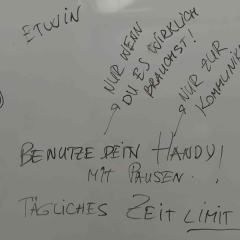 ETWIN
NUR WENN
DU ES WIRKLICH
BRAUCHST!
NUR ZUR
BENUTZE DEIN HANDY!
MIT PAUSEN.
TÄGLICHES ZEIT LIMIT